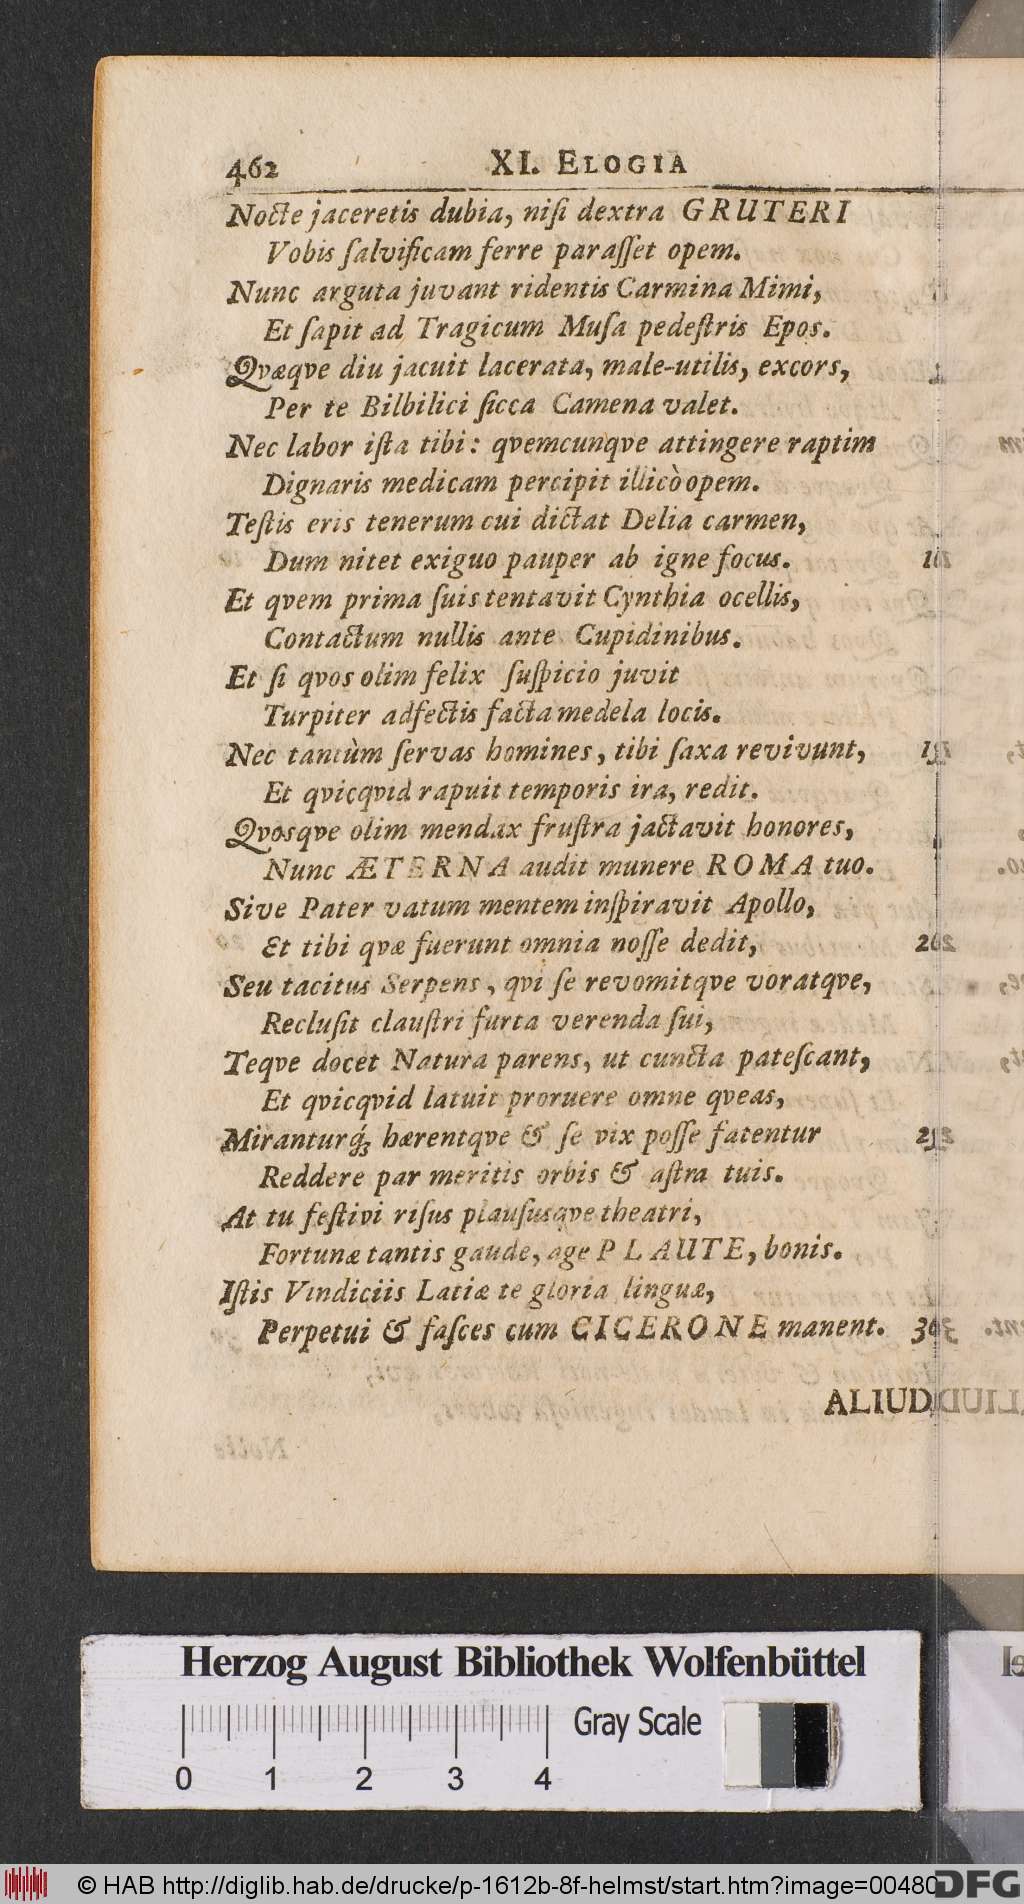 462 XI. ELOGIA
Nocte jaceretis dubia, niſi dextra GRUTERI
Vobis ſalvificam ferre paraſſet opem.
Nunc arguta juvant ridentis Carmina Mimi,
Et ſapit ad Tragicum Muſa pedeſtris Epos.
Qvæqve diu jacuit lacerata, male-utilis, excors,
Per te Bilbilici ſicca Camena valet.
Nec labor iſta tibi: qvemcunqve attingere raptim
Dignaris medicam percipit illicò opem.
Teſtis eris tenerum cui dictat Delia carmen,
Dum nitet exiguo pauper ab igne focus.
Et qvem prima ſuis tentavit Cynthia ocellis,
Contactum nullis ante Cupidinibus.
Et ſi qvos olim felix ſuſpicio juvit
Turpiter adfectis facta medela locis.
Nec tantùm ſervas homines, tibi ſaxa revivunt,
Et qvicqvid rapuit temporis ira, redit.
Qvosqve olim mendax fruſtra jactavit honores,
Nunc ÆTERNA audit munere ROMA tuo.
Sive Pater vatum mentem inſpiravit Apollo,
Et tibi qvæ fuerunt omnia noſſe dedit,
Seu tacitus Serpens, qvi ſe revomitqve voratqve,
Recluſit clauſtri furta verenda ſui,
Teqve docet Natura parens, ut cuncta pateſcant,
Et qvicqvid latuit proruere omne qveas,
Miranturq́; hærentqve & ſe vix poſſe fatentur
Reddere par meritis orbis & aſtra tuis.
At tu feſtivi riſus plauſusqve theatri,
Fortunæ tantis gaude, age PLAUTE, bonis.
Iſtis Vindiciis Latiæ te gloria linguæ,
Perpetui & faſces cum CICERONE manent.
ALIUD
Herzog August Bibliothek Wolfenbüttel
0 1 2 3 4
Gray Scale
© HAB http://diglib.hab.de/drucke/p-1612b-8f-helmst/start.htm?image=00480
DFG